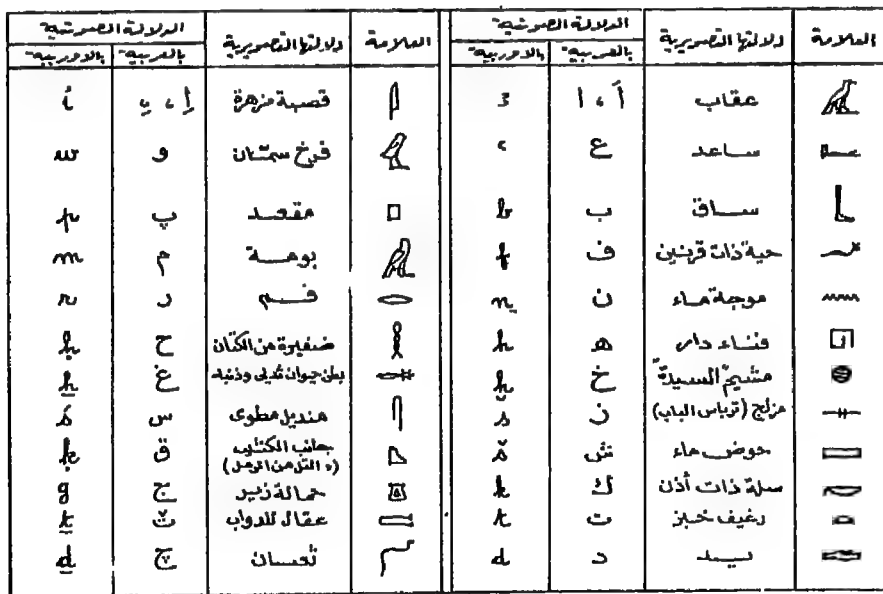 العلامة دلالتها التصويرية الدلالة الصوتية
بالعربية بالاوربية
عقاب أ ، ا ꜣ
ساعد ع ꜥ
ساق ب b
حية ذات قرنين ف f
موجة ماء ن n
فناء دار ه h
مشيم السيدة خ ḫ
مزلاج (ترباس الباب) ز s
حوض ماء ش š
سلة ذات أذن ك k
رغيف خبز ت t
يـد د d
العلامة دلالتها التصويرية الدلالة الصوتية
بالعربية بالاوربية
قصبة مزهرة إ ، ي i
فرخ سمان و w
مقعد پ p
بومة م m
فم ر r
ضفيرة من الكتان ح ḥ
بطن حيوان ثديى وذنبه غ ẖ
منديل مطوى س ś
جانب الكثيب ق ḳ
(، التل من الرمل)
حمالة زير ج g
عقال للدواب ث ṯ
ثعبان چ ḏ